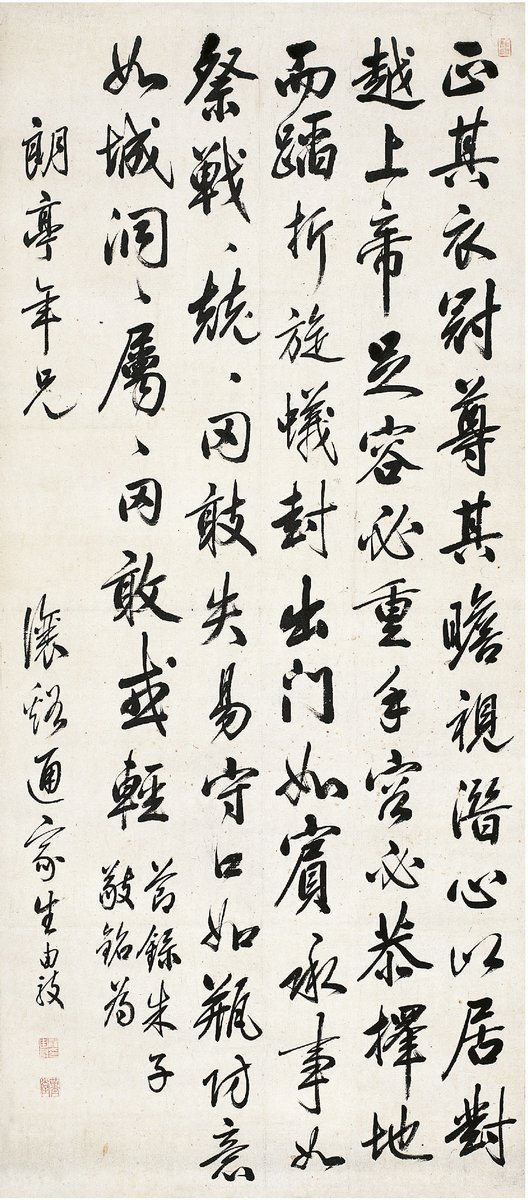 正其衣冠尊其瞻視潛心以居對
越上帝足容必重手容必恭擇地
而蹈折旋蟻封出門如賓承事如
祭戰、兢、罔敢失易守口如瓶防意
如城洞、屬、罔敢或輕
節錄朱子
敬銘為
朗亭年兄
瀼谿通家生由敦